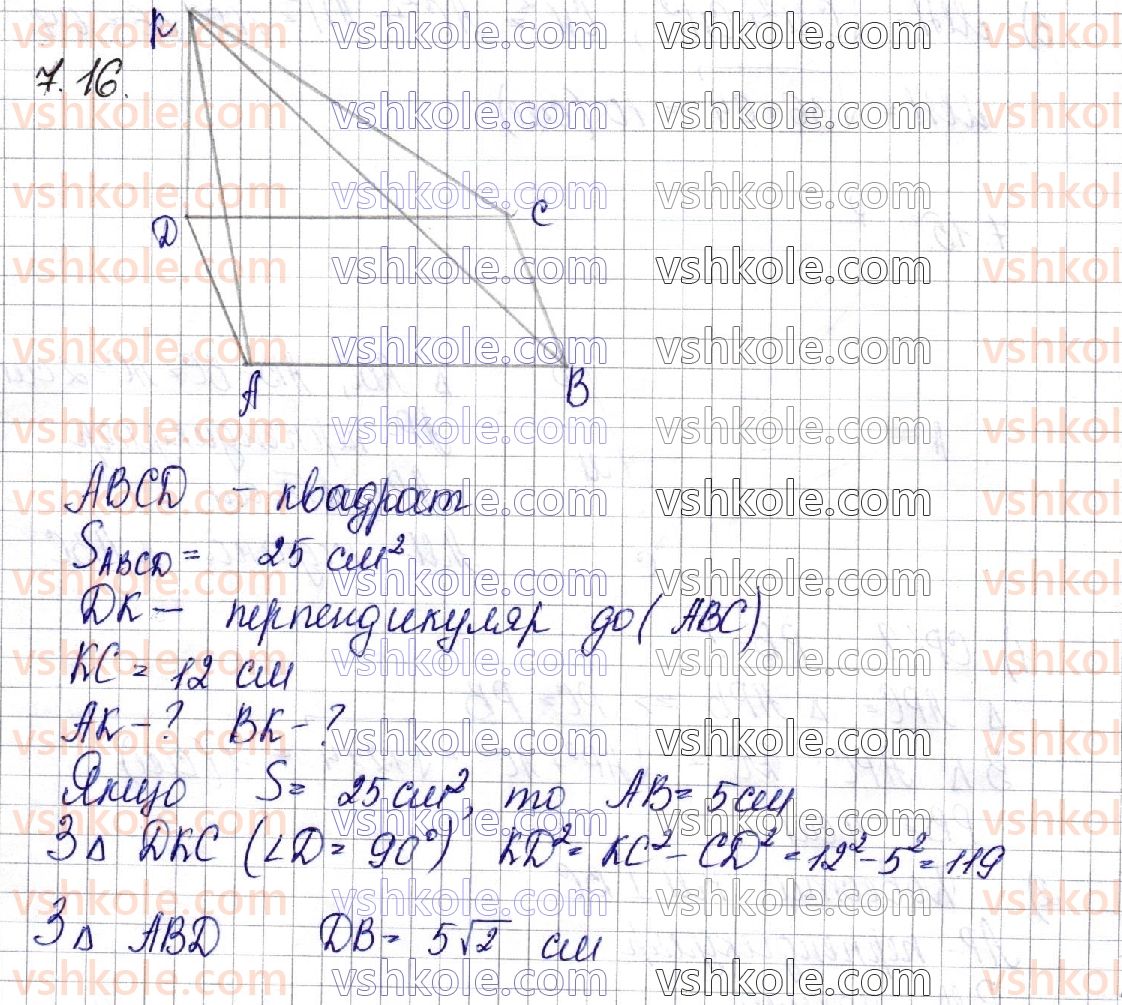 K
7.16.
D
C
A
B
ABCD – квадрат
S_ABCD = 25 см²
DK – перпендикуляр до (ABC)
KC = 12 см
AK – ? BK – ?
Якщо S = 25 см², то AB = 5 см
З △ DKC (∠D = 90°) KD² = KC² – CD² = 12² – 5² = 119
З △ ABD DB = 5√2 см
vshkole.com